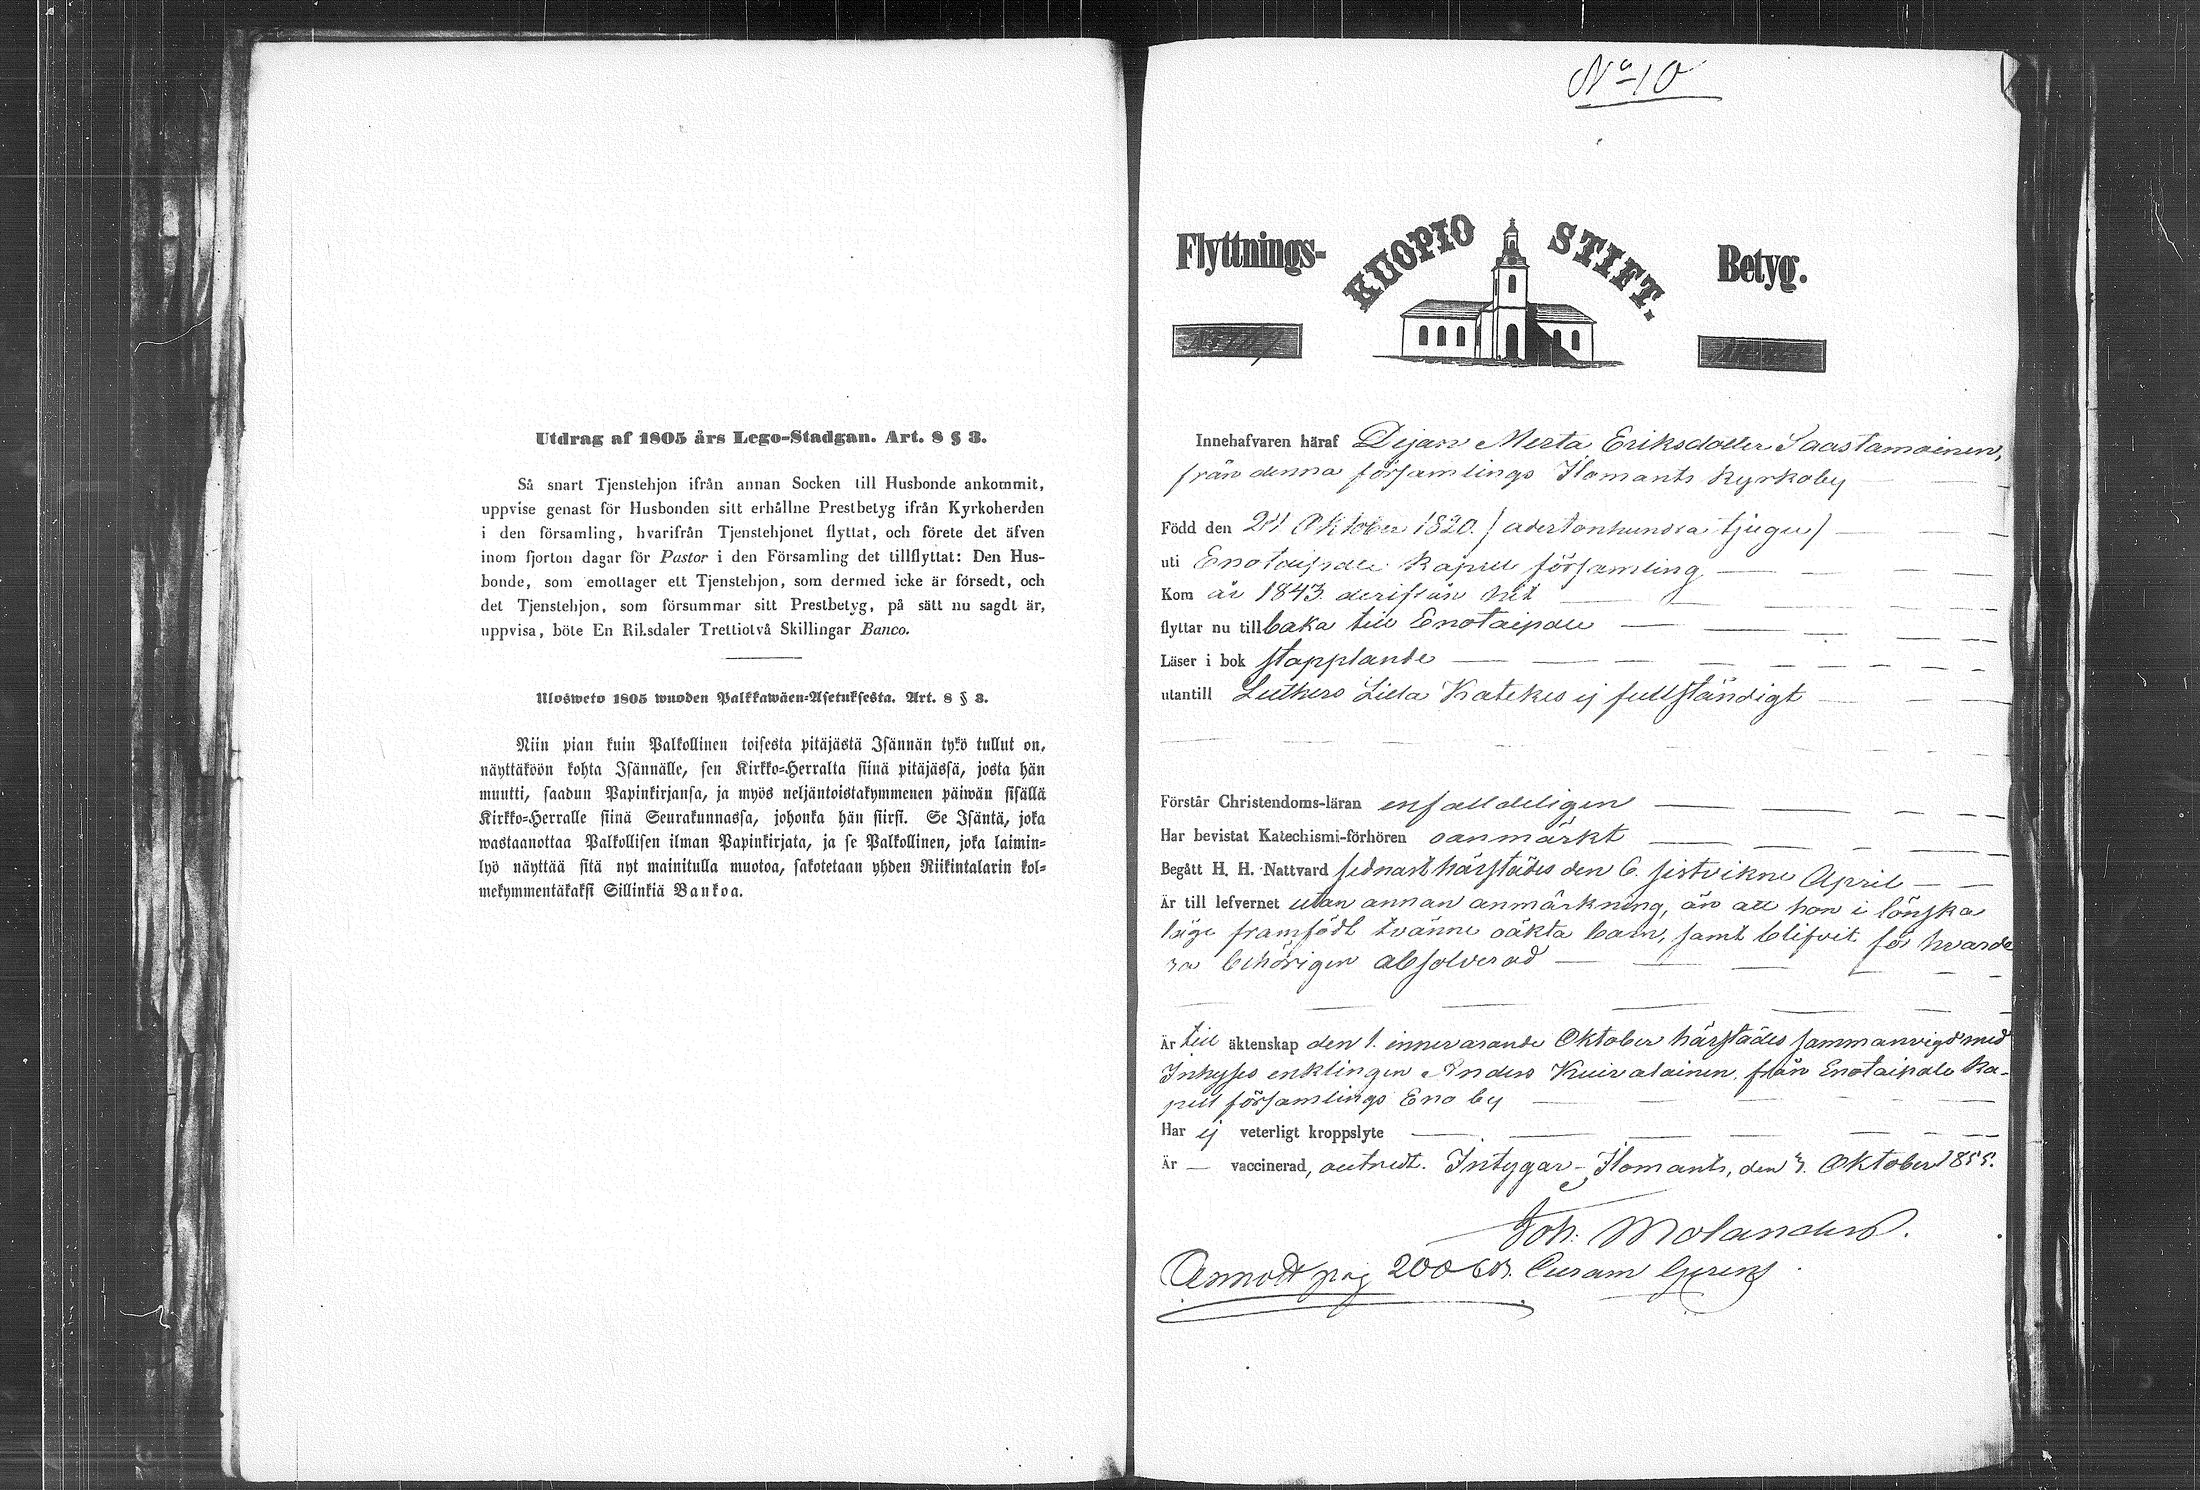 Utdrag af 1805 års Lego-Stadgan. Art. 8 § 3.
Så snart Tjenstehjon ifrån annan Socken till Husbonde ankommit,
uppvise genast för Husbonden sitt erhållne Prestbetyg ifrån Kyrkoherden
i den församling, hvarifrån Tjenstehjonet flyttat, och förete det äfven
inom fjorton dagar för Pastor i den Församling det tillflyttat: Den Hus-
bonde, som emottager ett Tjenstehjon, som dermed icke är försedt, och
det Tjenstehjon, som försummar sitt Prestbetyg, på sätt nu sagdt är,
uppvisa, böte En Riksdaler Trettiotvå Skillingar Banco.
Ulosweto 1805 wuoden Palkkawäen-Asetuksesta. Art. 8 § 3.
Niin pian kuin Palkollinen toisesta pitäjästä Isännän tykö tullut on,
näyttäköön kohta Isännälle, sen Kirkko-Herralta siinä pitäjässä, josta hän
muutti, saadun Papinkirjansa, ja myös neljäntoistakymmenen päiwän sisällä
Kirkko-Herralle siinä Seurakunnassa, johonka hän siirsi. Se Isäntä, joka
wastaanottaa Palkollisen ilman Papinkirjata, ja se Palkollinen, joka laimin-
lyö näyttää sitä nyt mainitulla muotoa, sakotetaan yhden Riikintalarin kol-
mekymmentäkaksi Sillinkiä Bankoa.
No 10
Flyttnings- KUOPIO STIFT. Betyg.
Innehafvaren häraf Dejan Merta Eriksdotter Saastamoinen,
från denna församlings Ilomants Kyrkoby
Född den 24 Oktober 1820. / adertonhundra tjugu /
uti Enotaipale Kapell församling
Kom år 1843. derifrån hit
flyttar nu tillbaka till Enotaipale
Läser i bok stapplande
utantill Luthers Lilla Katekes ej fullständigt
Förstår Christendoms-läran enfalldeligen
Har bevistat Katechismi-förhören oanmärkt
Begått H. H. Nattvard sednast härstädes den 6. sistvikne April
Är till lefvernet utan annan anmärkning, än att hon i lönska
läge framfödt tvänne oäkta barn, samt blifvit för hvarde
ra behörigen absolverad
Är till äktenskap den 1. innevarande Oktober härstädes sammanvigd med
Inhyses enklingen Anders Kuivalainen från Enotaipale Ka-
pell församlings Eno by
Har ej veterligt kroppslyte
Är — vaccinerad, outredt. Intygar Ilomants, den 3. Oktober 1855.
Joh. Molanders.
Annott pag 200 Curam gerens